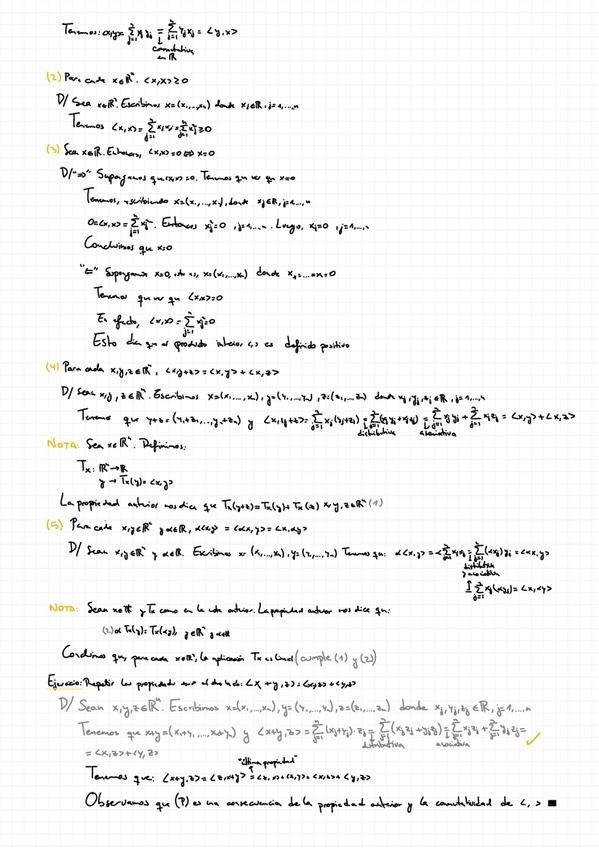 Tenemos: <x,y> = Σ_{j=1}^{n} x_j y_j = Σ_{j=1}^{n} y_j x_j = <y,x>
conmutativa
en ℝ
(2) Para cada x∈ℝⁿ. <x,x> ≥ 0
D/ Sea x∈ℝⁿ. Escribimos x=(x₁,...,xₙ) donde x_j∈ℝ, j=1,...,n
Tenemos <x,x> = Σ_{j=1}^{n} x_j x_j = Σ_{j=1}^{n} x_j² ≥ 0
(3) Sea x∈ℝⁿ. Entonces, <x,x>=0 ⇔ x=0
D/ "⇒" Supongamos que <x,x>=0. Tenemos que ver que x=0
Tenemos, escribiendo x=(x₁,...,xₙ), donde x_j∈ℝ, j=1,...,n
0=<x,x> = Σ_{j=1}^{n} x_j². Entonces x_j²=0, j=1,...,n. Luego, x_j=0, j=1,...,n
Concluimos que x=0
"⇐" Supongamos x=0, esto es, x=(x₁,...,xₙ) donde x₁=...=xₙ=0
Tenemos que ver que <x,x>=0
En efecto, <x,x> = Σ_{j=1}^{n} x_j²=0
Esto dice que el producto interior <,> es definido positivo
(4) Para cada x,y,z∈ℝⁿ, <x,y+z> = <x,y> + <x,z>
D/ Sean x,y,z∈ℝⁿ. Escribimos x=(x₁,...,xₙ), y=(y₁,...,yₙ), z=(z₁,...,zₙ) donde x_j,y_j,z_j∈ℝ, j=1,...,n
Tenemos que y+z=(y₁+z₁,...,yₙ+zₙ) y <x,y+z> = Σ_{j=1}^{n} x_j(y_j+z_j) = Σ_{j=1}^{n} (x_j y_j+x_j z_j) = Σ_{j=1}^{n} x_j y_j + Σ_{j=1}^{n} x_j z_j = <x,y>+<x,z>
distributiva asociativa
NOTA: Sea x∈ℝⁿ. Definimos:
Tₓ: ℝⁿ→ℝ
y → Tₓ(y)=<x,y>
La propiedad anterior nos dice que Tₓ(y+z)=Tₓ(y)+Tₓ(z) x,y,z∈ℝⁿ (1)
(5) Para cada x,y∈ℝⁿ y α∈ℝ, α<x,y> = <αx,y> = <x,αy>
D/ Sean x,y∈ℝⁿ y α∈ℝ. Escribimos x=(x₁,...,xₙ), y=(y₁,...,yₙ) Tenemos que: α<x,y> = α Σ_{j=1}^{n} x_j y_j = Σ_{j=1}^{n} (αx_j)y_j = <αx,y>
distributiva
y asociativa
= Σ_{j=1}^{n} x_j(αy_j) = <x,αy>
NOTA: Sean x∈ℝⁿ y Tₓ como en la nota anterior. La propiedad anterior nos dice que:
(2) α Tₓ(y)=Tₓ(αy), y∈ℝⁿ y α∈ℝ
Concluimos que, para cada x∈ℝⁿ, la aplicación Tₓ es lineal (cumple (1) y (2))
Ejercicio: Repetir las propiedades al otro lado: <x+y,z> = <x,z> + <y,z>
D/ Sean x,y,z∈ℝⁿ. Escribimos x=(x₁,...,xₙ), y=(y₁,...,yₙ), z=(z₁,...,zₙ) donde x_j,y_j,z_j∈ℝ, j=1,...,n
Tenemos que x+y=(x₁+y₁,...,xₙ+yₙ) y <x+y,z> = Σ_{j=1}^{n} (x_j+y_j)·z_j = Σ_{j=1}^{n} (x_j z_j+y_j z_j) = Σ_{j=1}^{n} x_j z_j + Σ_{j=1}^{n} y_j z_j =
distributiva asociativa
= <x,z>+<y,z> ✓
"última propiedad"
Tenemos que: <x+y,z> = <z,x+y> = <z,x>+<z,y> = <x,z>+<y,z>
Observamos que (P) es una consecuencia de la propiedad anterior y la conmutatividad de <,> ■